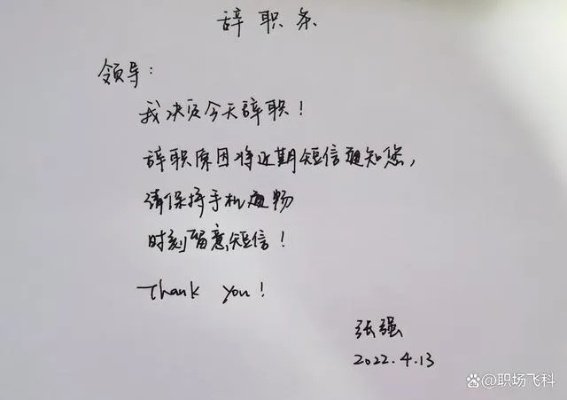 辞职条
领导：
我决定今天辞职！
辞职原因将近期短信通知您，
请保持手机通畅
时刻留意短信！
Thank you!
张强
2022.4.13
职场飞科